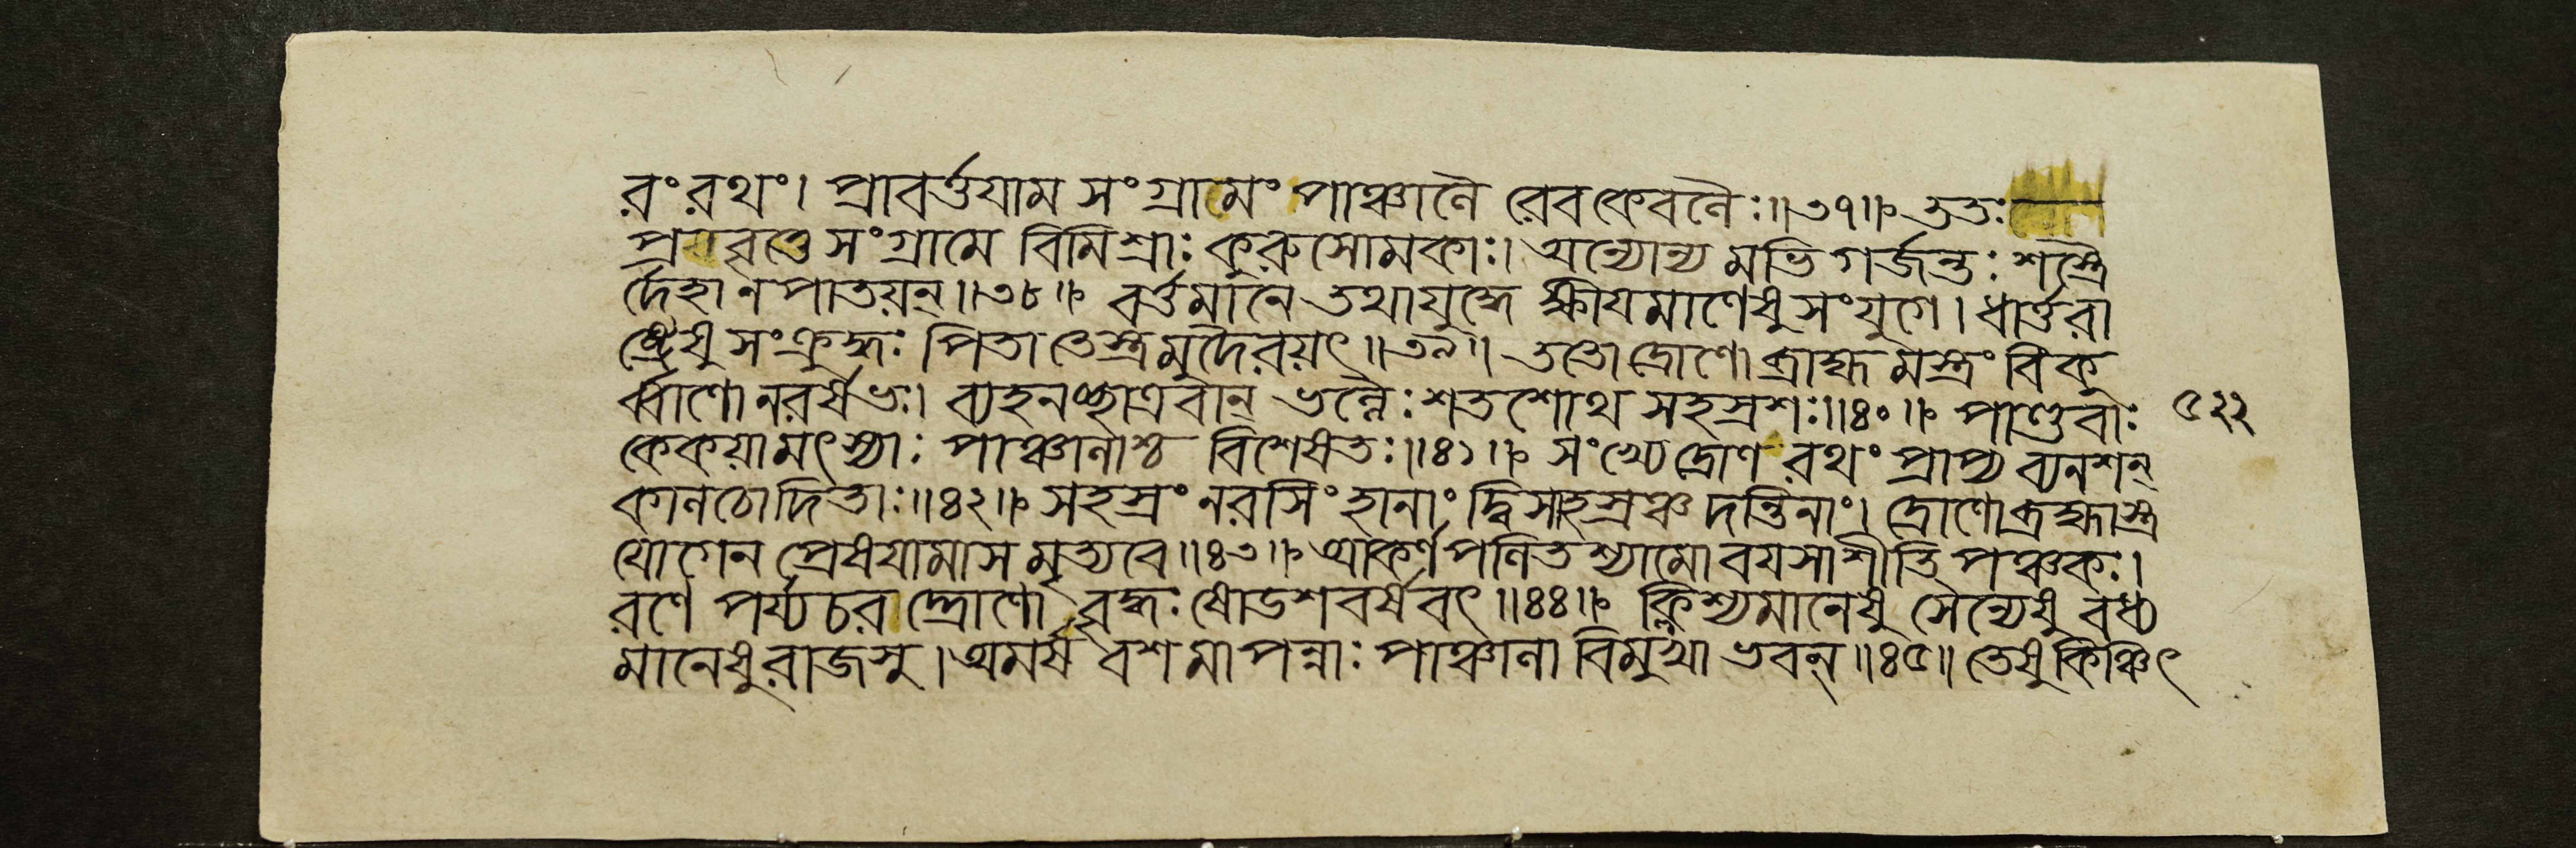 রংরথং। প্রাবর্ত্তযাম সংগ্রামেং পাঞ্চালৈ রেবকেবলৈঃ॥৩৭॥ ততঃ
প্রববৃত্তে সংগ্রামে বিমিশ্রাঃ কুরুসোমকাঃ। অন্যোন্য মভি গর্জন্তঃ শস্ত্রৈ
র্দেহানপাতয়ন্॥৩৮॥ বর্ত্তমানে তথাযুদ্ধে ক্ষীযমাণেষু সংযুগে। ধার্ত্তরা
ষ্ট্রেষু সংক্রুদ্ধঃ পিতা তেস্ত্রমুদৈরয়ৎ॥৩৯॥ ততোদ্রোণো ব্রাহ্মমস্ত্রং বিকু
র্ব্বাণো নরর্ষভঃ। ব্যহনচ্ছাত্রবান্ ভল্লৈঃ শতশোথ সহস্রশঃ॥৪০॥ পাণ্ডবাঃ
কেকয়ামৎস্যাঃ পাঞ্চালাশ্চ বিশেষতঃ॥৪১॥ সংখ্যে দ্রোণ রথং প্রাপ্য ব্যনশন্
কালচোদিতাঃ॥৪২॥ সহস্রং নরসিংহানাং দ্বিসাহস্রঞ্চ দন্তিনাং। দ্রোণোব্রহ্মাস্ত্র
যোগেন প্রেষযামাস মৃত্যবে॥৪৩॥ আকর্ণ পলিতশ্যামো বযসাশীতি পঞ্চকঃ।
রণে পর্য্যচর দ্দ্রোণো বৃদ্ধঃ ষোডশবর্ষবৎ॥৪৪॥ ক্লিশ্যমানেষু সৈন্যেষু বধ্য
মানেষু রাজসু। অমর্ষ বশমাপন্নাঃ পাঞ্চালা বিমুখা ভবন্॥৪৫॥ তেষু কিঞ্চিৎ
৫২২